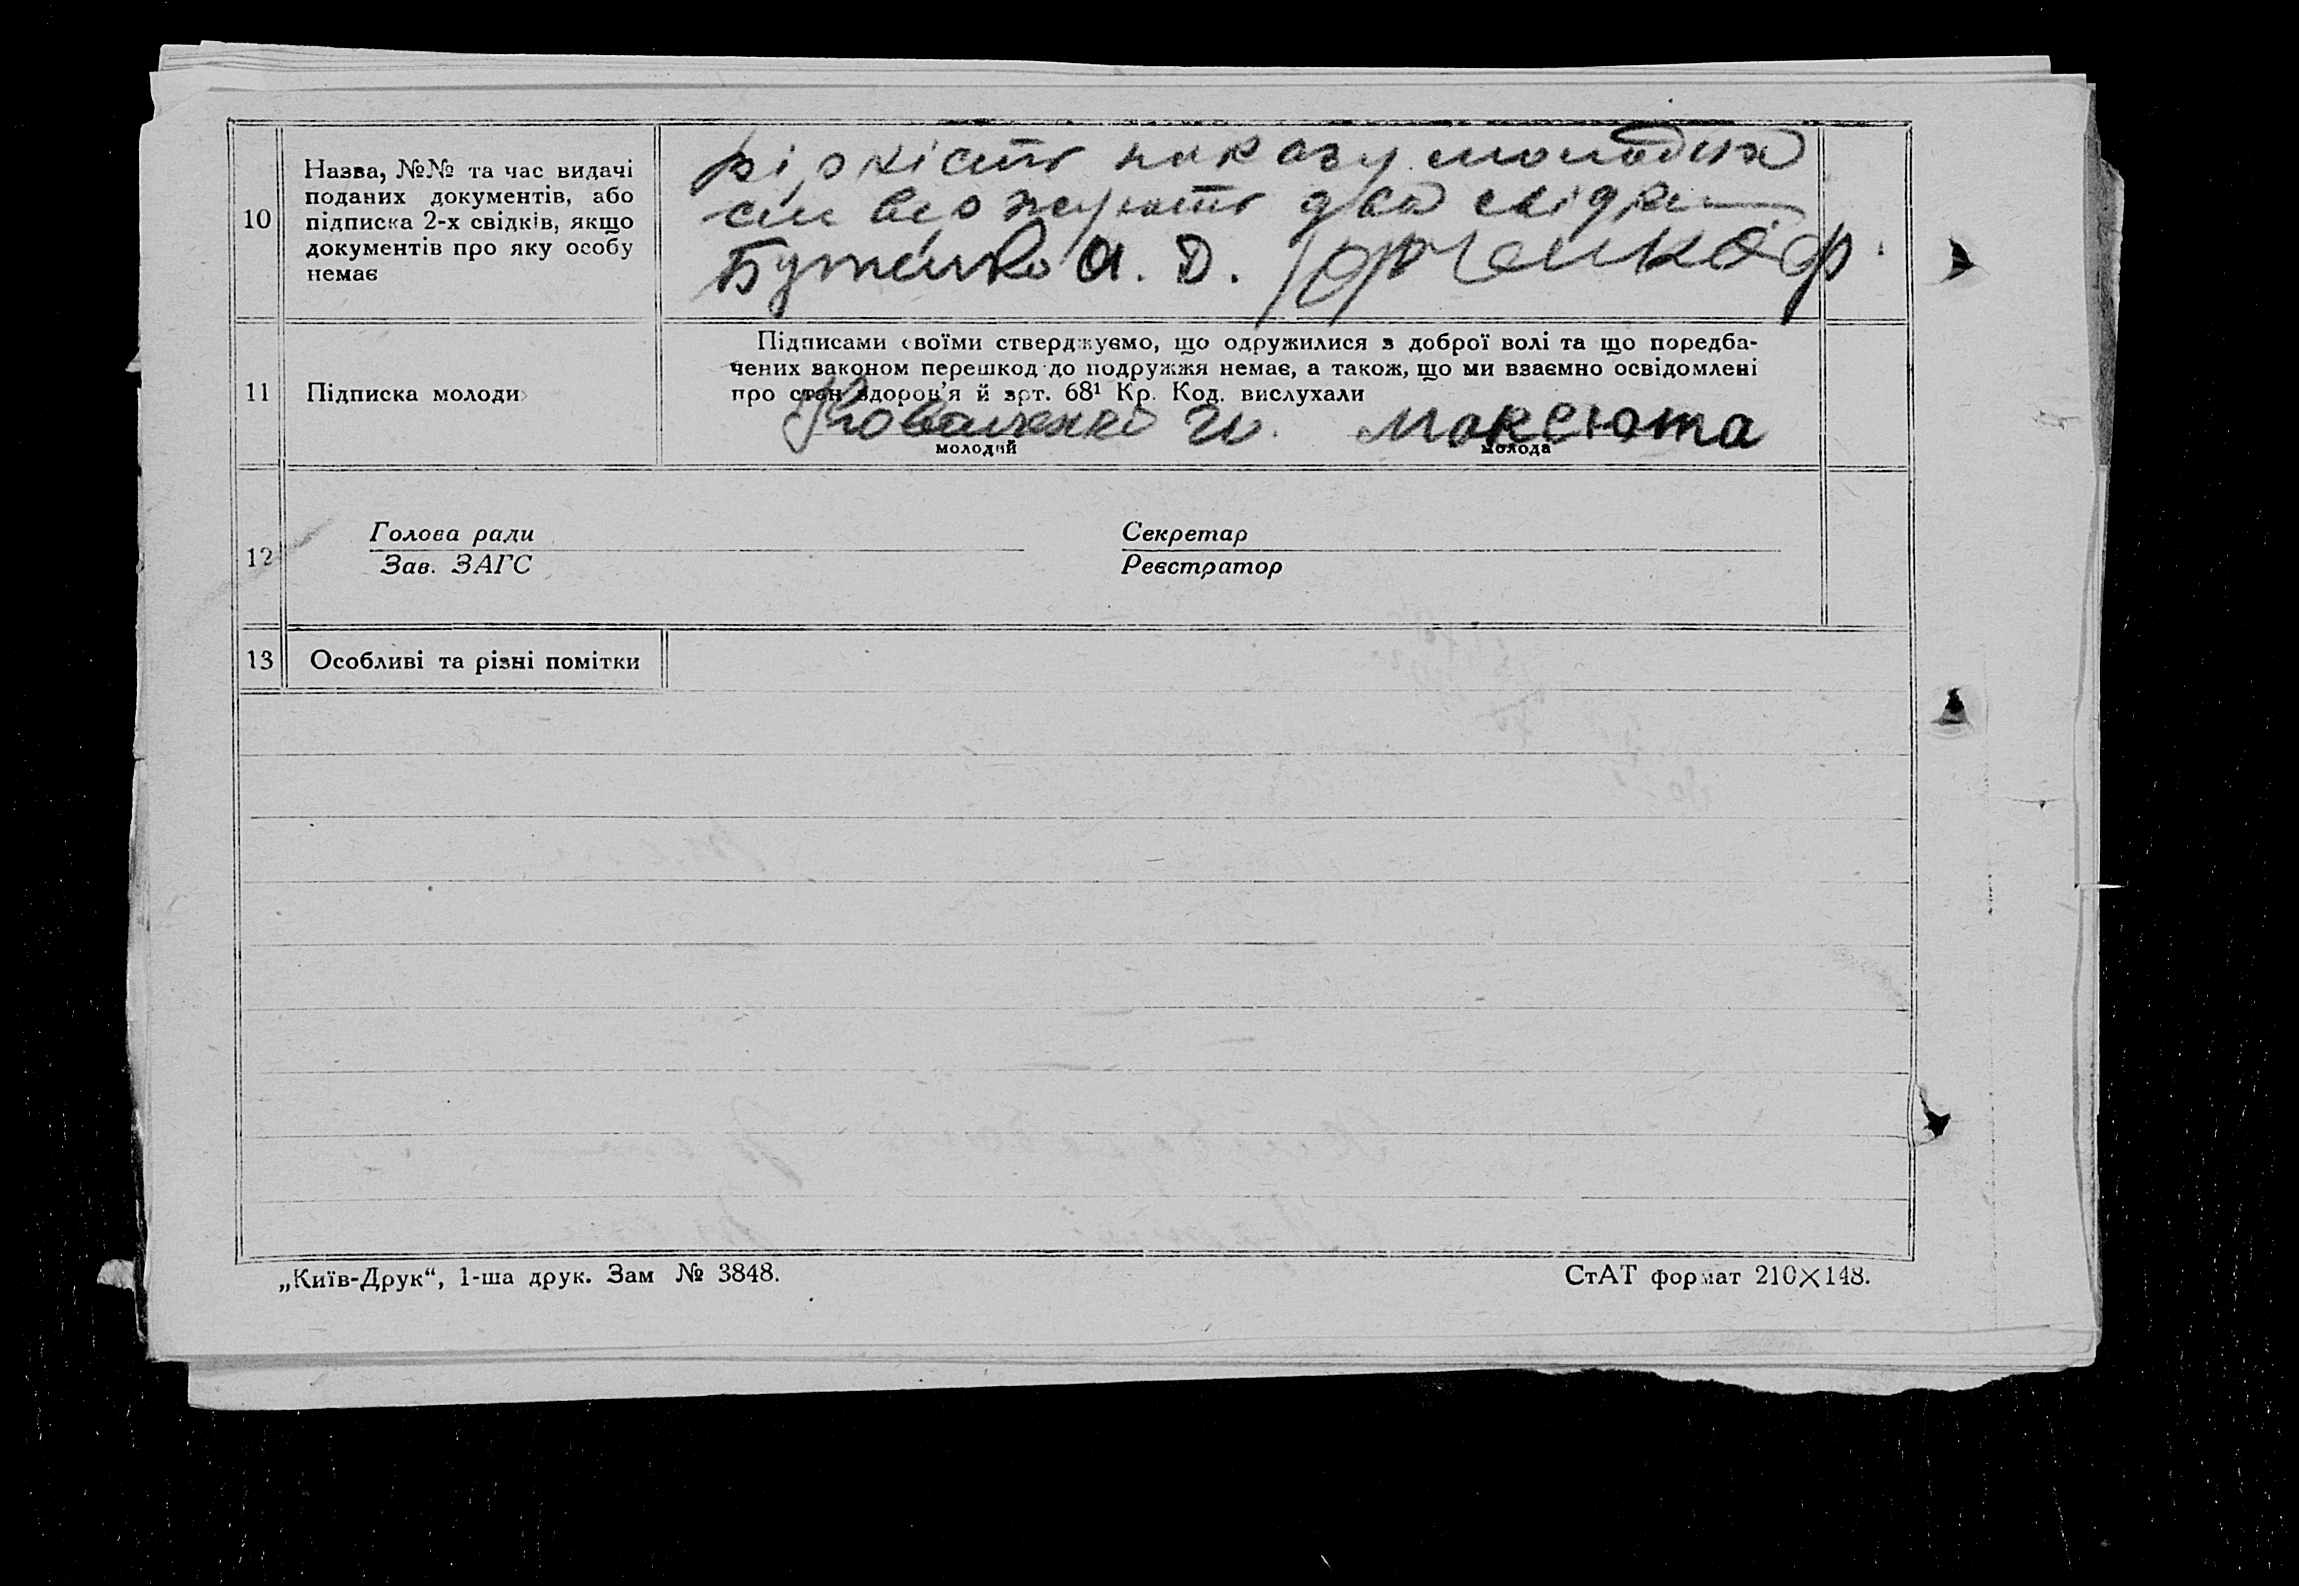 10
Назва, №№ та час видачі
поданих документів, або
підписка 2-х свідків, якщо
документів про яку особу
немає
показу молодих
два свідки
Бутенко А. Д.
11
Підписка молоди
Підписами своїми стверджуємо, що одружилися з доброї волі та що передба-
чених законом перешкод до подружжя немає, а також, що ми взаємно освідомлені
про стан здоров'я й арт. 68¹ Кр. Код. вислухали
Коваленко И. Максюта
молодий молода
12
Голова ради Секретар
Зав. ЗАГС Реєстратор
13
Особливі та різні помітки
„Київ-Друк“, 1-ша друк. Зам № 3848. СтАТ формат 210×148.